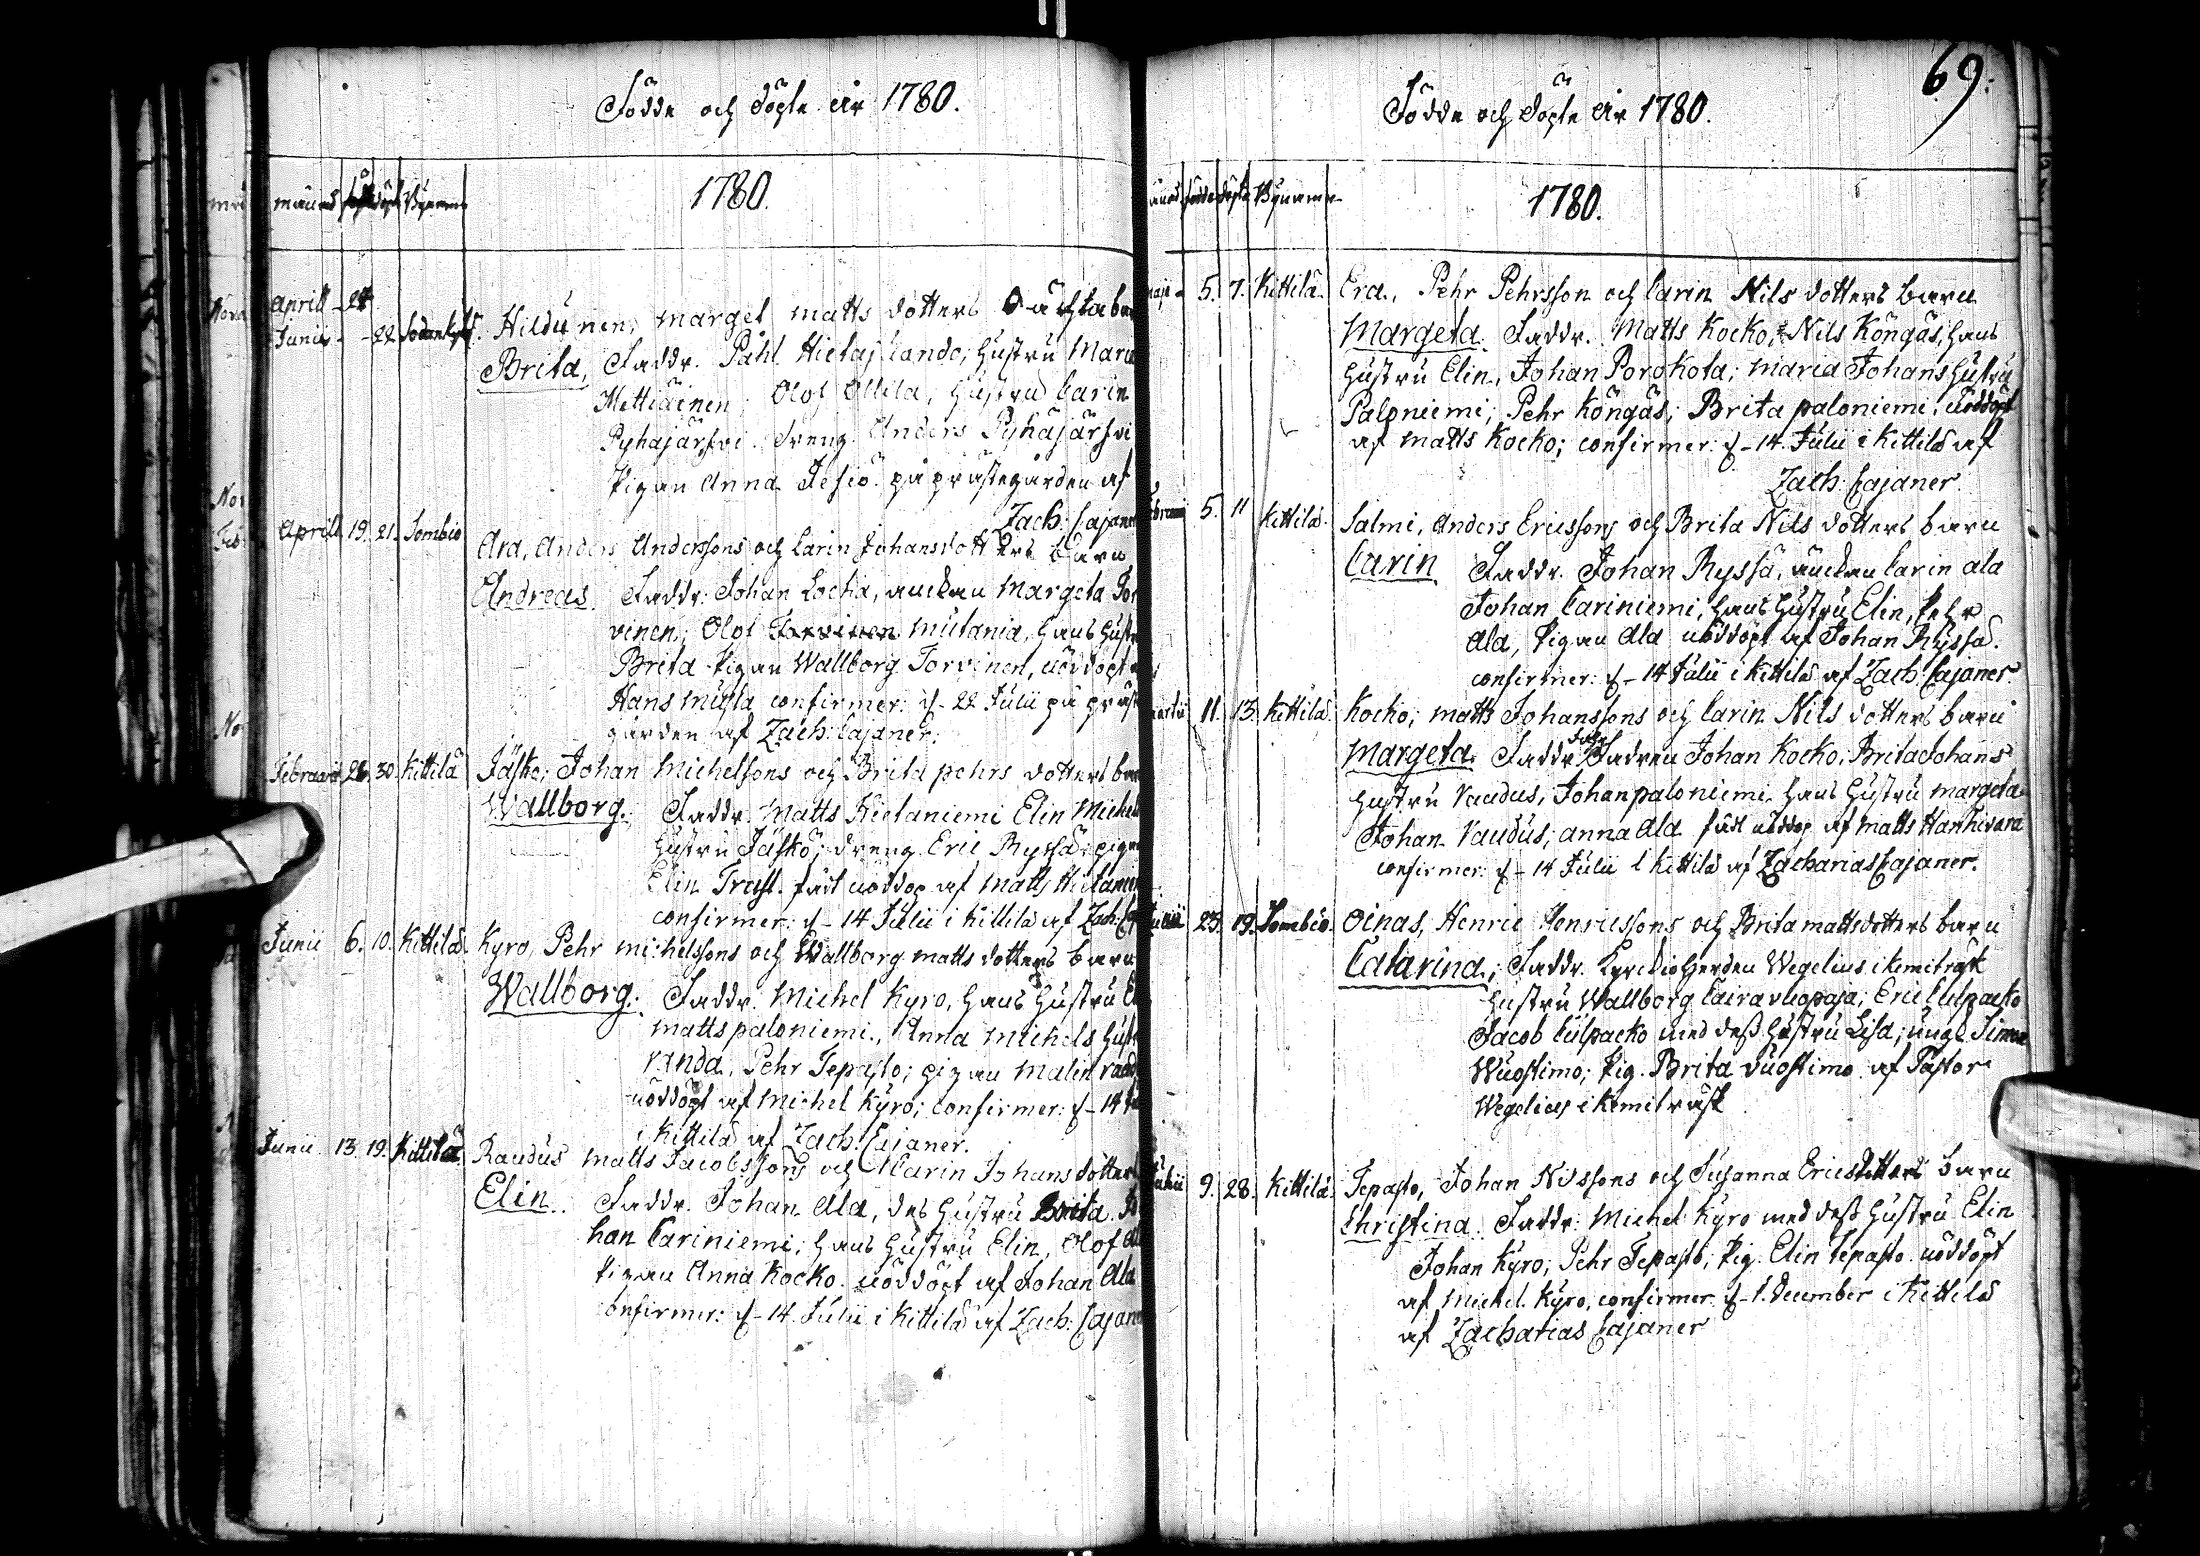 Födde och döpte åir 1780.
månad födde döpte Bynamn
1780.
Aprill - 24
Junii - - 22 Sodankylä. Hildunen, marget matts dotters
Brita, Faddr. Påhl Hietajlando, hustru Maria
Mettiäinen; Olof Ollila, hustru Carin
Pyhajärfvi. dreng Anders Pyhajärfvi
Pigan Anna Jesiö. på prästegården af
Zach: Cajaner
Aprill 19. 21. Sombio Ara, Anders Anderssons och Carin Johansdotters barn
Andreas. Faddr: Johan Locka, änckan Margeta Tor
vinen; Olof Torvinen mutania, hans hustr
Brita Pigan Wallborg Torvinen, nöddöpt
Hans musta confirmer: d- 22 Julii på präst
gården af Zach: Cajaner.
Februarii 28. 30. Kittilä Jäsko; Johan Michelsons och Brita pehrs dotters bar
Wallborg. Faddr. Matts Hietaniemi Elin Michels
hustru Jäsko; dreng Eric Ryssä; pigan
Elin Trast. födt nöddop af Matts Hietaniem
confirmer: d- 14 Julii i Kittilä af Zach: Caj
Junii 6. 10. Kittilä. Kyro, Pehr michelssons och Wallborg matts dotters barn
Wallborg. Faddr. Michel Kyro, hans hustru El
matts paloniemi., Anna michels hust
randa, Pehr Tepasto; pigan Malin rand
nöddöpt af Michel Kyro; confirmer: d- 14 Ju
i Kittilä af Zach: Cajaner.
Junii 13. 19. Kittilä. Raudus matts Jacobssons och Carin Johans dotter
Elin. Faddr. Johan Ala, des hustru Brita. Jo
han Cariniemi, hans hustru Elin, Olof al
Pigan Anna Kocko. nöddöpt af Johan Ala
Confirmer: d- 14 Julii i Kittilä af Zach: Cajan
69.
Födde och döpte år 1780.
månad födde döpte Bynamn
1780.
maji - 5. 7. Kittilä. Era., Pehr Pehrsson och Carin Nils dotters barn
Margeta. Faddr. Matts Kocko; Nils Köngäs, hans
hustru Elin, Johan Porokota; Maria Johans hustru
Paloniemi; Pehr Köngäs; Brita paloniemi. nöddöpt
af matts Kocko; confirmer: d- 14. Julii i Kittilä af
Zach: Cajaner.
5. 11 Kittilä. Salmi, Anders Ericssons och Brita Nils dotters barn
Carin Faddr. Johan Ryssä, änckan Carin ala
Johan Cariniemi, hans hustru Elin, Pehr
Ala, Pigan Ala nöddöpt af Johan Ryssä.
confirmer: d- 14 Julii i Kittilä af Zach: Cajaner.
martii 11. 13. Kittilä. Kocko; matts Johanssons och Carin Nils dotters barn
Margeta. Faddr. Fadren Johan Kocko, Brita Johans
hustru Vaudus, Johan paloniemi, hans hustru margeta
Johan Vaudus; anna Ala födt nöddop af matts Hanhivara
confirmer: d- 14 Julii i Kittilä af Zacharias Cajaner.
Junii 23. 19. Sombio. Oinas, Henric Henricssons och Brita mattsdotters barn
Catarina.; Faddr. Kyrckioherden Wegelius i Kemiträsk
hustru Wallborg Cairavuopaja; Eric Culpacko
Jacob Culpacko med dess hustru Lisa; ungk. Simon
Wuostimo; Pig. Brita Vuostimo af Pastor
Wegelius i Kemiträsk
9. 28. Kittilä. Tepasto, Johan Nilssons och Susanna Ericsdotters barn
Christina. Faddr: Michel Kyro med dess hustru Elin
Johan Kyro; Pehr Tepasto; Pig. Elin Tepasto. nöddöpt
af Michel Kyro, confirmer: d- 1. December i Kittilä
af Zacharias Cajaner